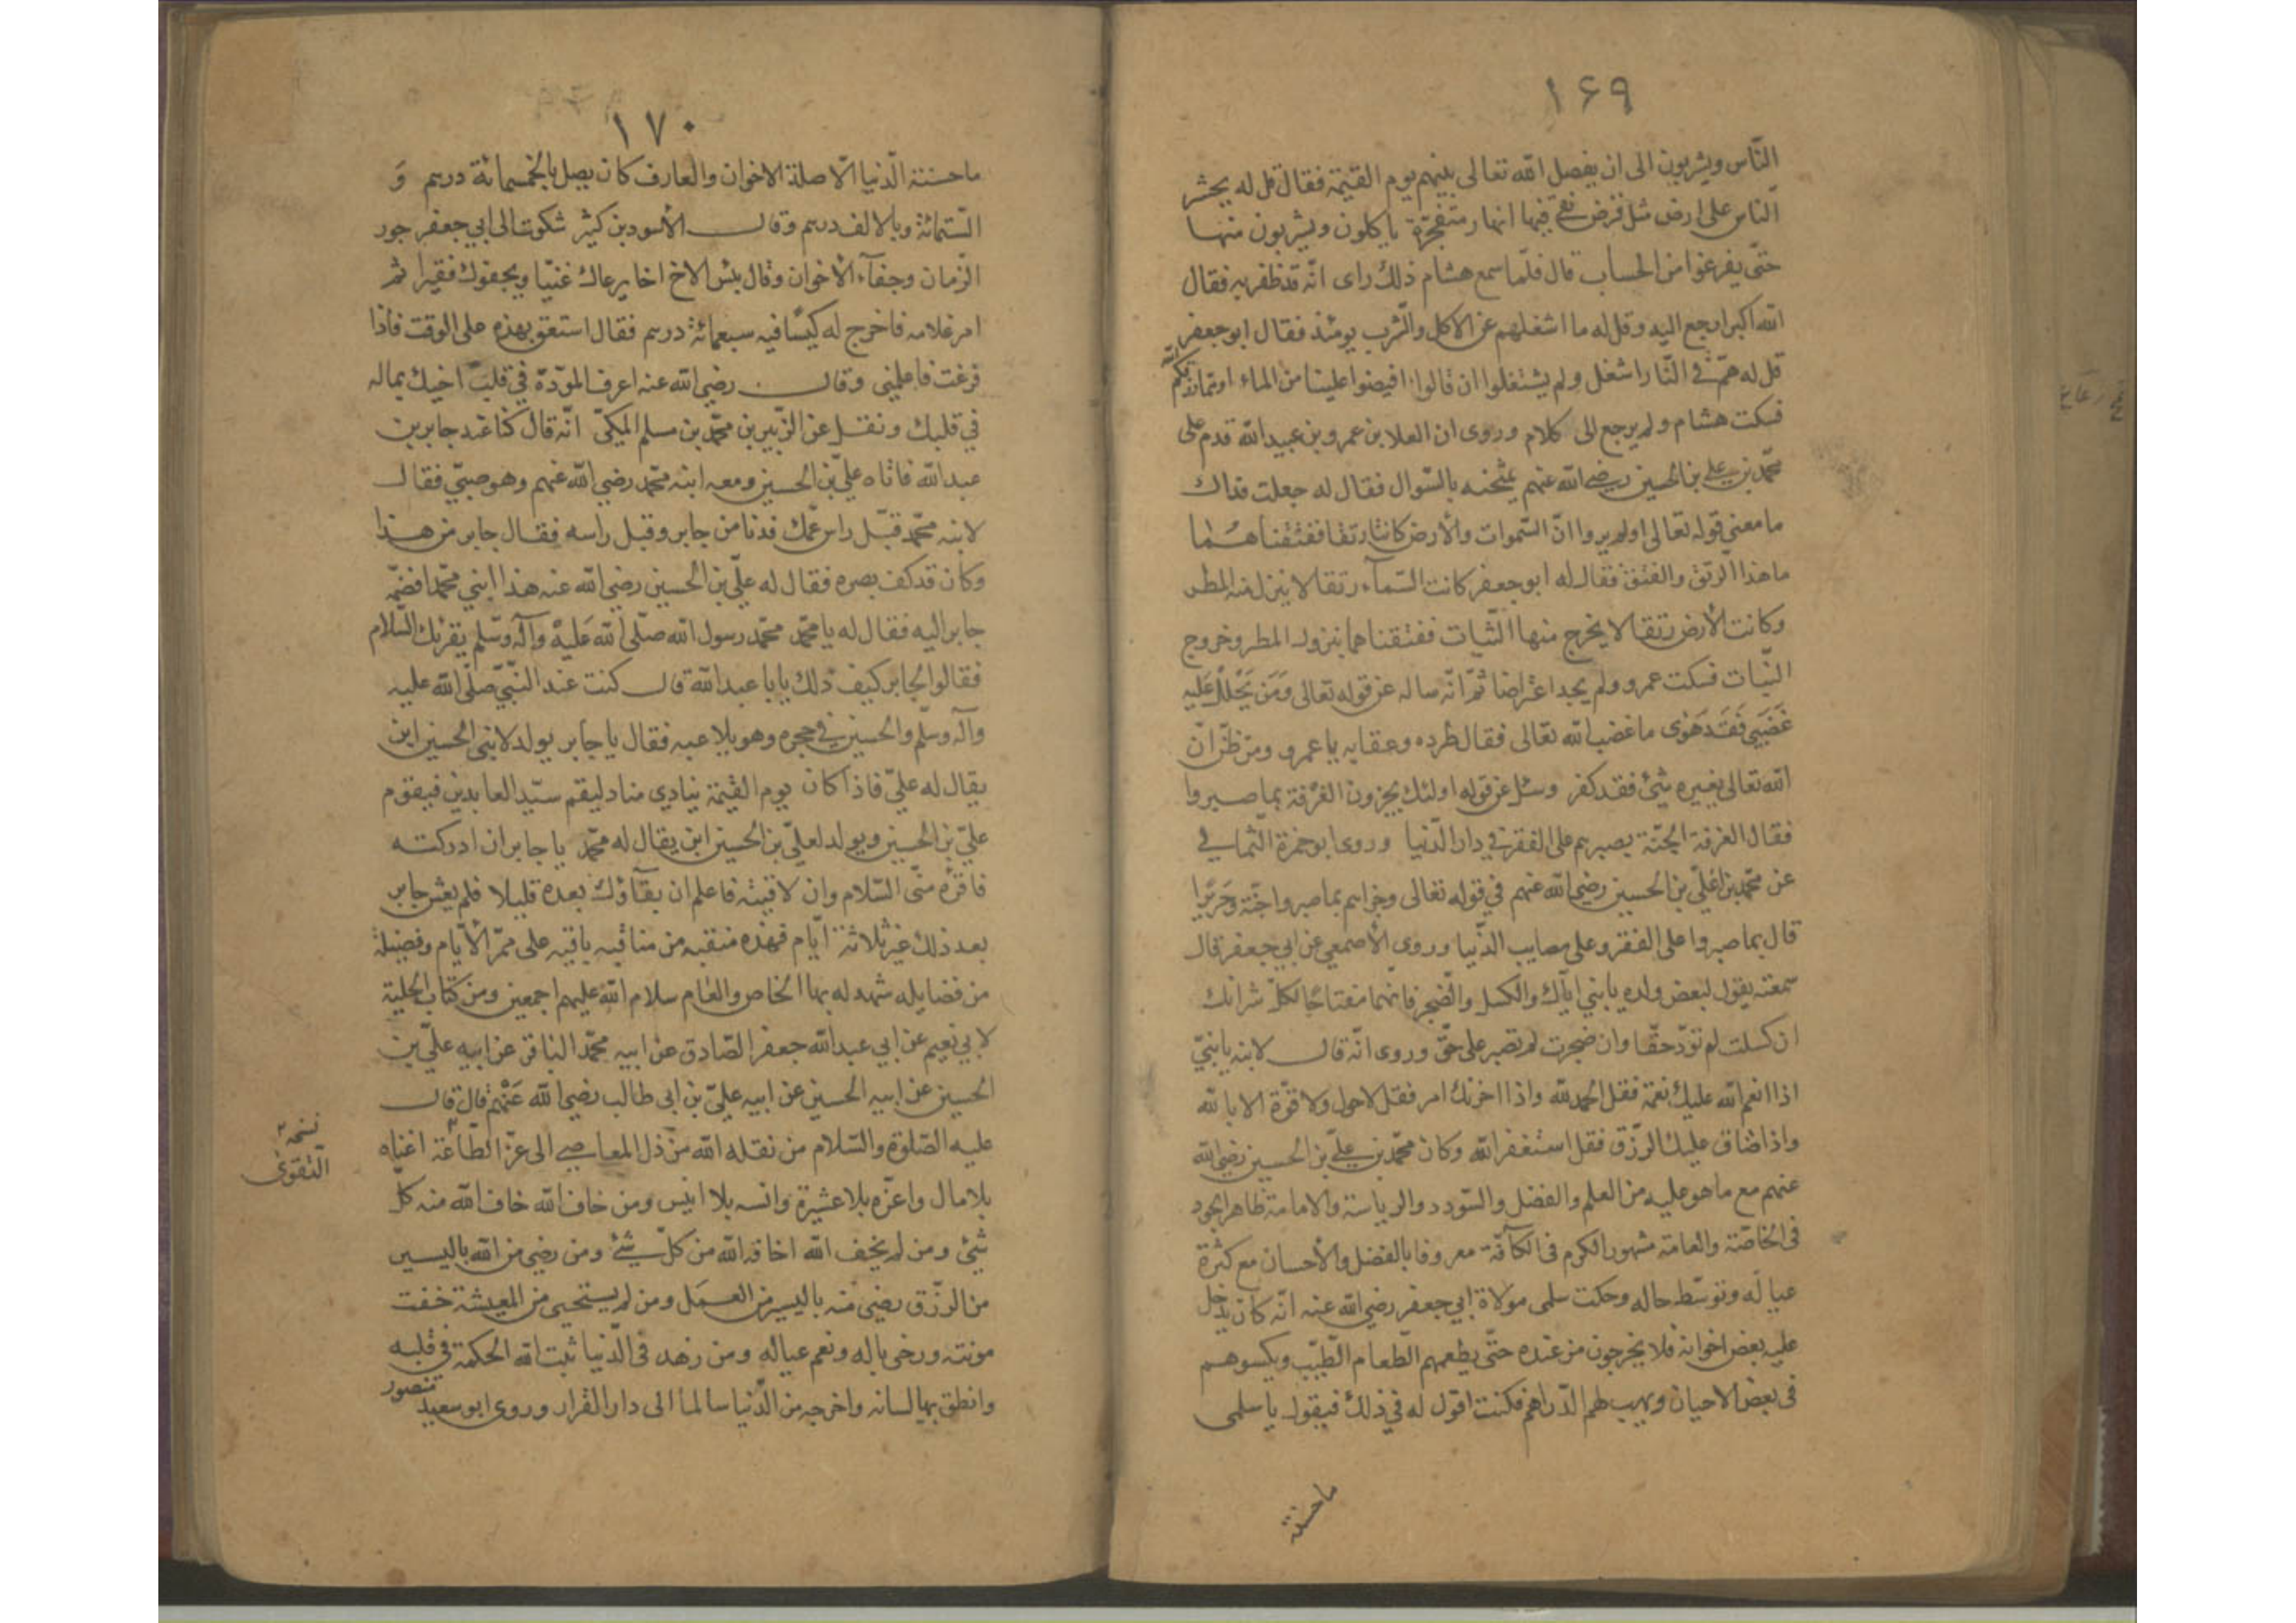 ١۶٩
النّاس ويشربون الى ان يفصل الله تعالى بينهم يوم القيمة فقال قل له يحشر
النّاس على ارض مثل قرص نقى فيها انهار متفجّرة ياكلون ويشربون منها
حتّى يفرغوا من الحساب قال فلمّا سمع هشام ذلك راى انّه قد ظفر به فقال
الله اكبر ارجع اليه وقل له ما اشغلهم عن الاكل والشرب يومئذ فقال ابو جعفر
قل له هم فى النّار اشغل ولم يشتغلوا ان قالوا افيضوا علينا من الماء او ممّا رزقكم الله
فسكت هشام ولم يرجع الى كلام وروى ان العلا بن عمرو بن عبيد الله قدم على
محمّد بن على بن الحسين رضى الله عنهم يمتحنه بالسّوال فقال له جعلت فداك
ما معنى قوله تعالى اولم يروا انّ السّموات والأرض كانتا رتقا ففتقناهما
ما هذا الرّتق والفتق فقال له ابو جعفر كانت السّمآء رتقا لا ينزل منه المطر
وكانت الأرض رتقا لا يخرج منها النّبات ففتقناهما بنزول المطر وخروج
النّبات فسكت عمرو ولم يجد اعتراضا ثمّ انّه ساله عن قوله تعالى وَمَن يَحْلل عَلَيه
غَضَبِي فَقَد هَوى ما غضب الله تعالى فقال طرده وعقابه يا عمرو ومن ظنّ انّ
الله تعالى يغيره شئ فقد كفر وسئل عن قوله اولئك يجزون الغُرفة بما صبروا
فقال الغرفة الجنّة بصبرهم على الفقر في دار الدّنيا وروى ابو حمزة الثّمالي
عن محمّد بن علىّ بن الحسين رضي الله عنهم في قوله تعالى وجزاهم بما صبروا جنّة وحَرِيرا
قال بما صبروا على الفقر وعلى مصايب الدّنيا وروى الأصمعي عن ابي جعفر قال
سمعته يقول لبعض ولده يا بني ايّاك والكسل والضّجر فانهما مفتاحا لكلّ شر انك
ان كسلت لم تودّ حقّا وان ضجرت لم تصبر على حقّ وروى انّه قال لابنه يا بنيّ
اذا انعم الله عليك نعمة فقل الحمد لله واذا احزنك امر فقل لا حول ولا قوّة الا بالله
واذا ضاق عليك الرّزق فقل استغفر الله وكان محمّد بن علىّ بن الحسين رضى الله
عنهم مع ما هو عليه من العلم والفضل والسّودد والرياسة والامامة ظاهر الجود
فى الخاصّة والعامة مشهور الكرم فى الكآفّة معروفا بالفضل والأحسان مع كثرة
عياله وتوسّط حاله وحكت سلمى مولاة ابي جعفر رضي الله عنه انّه كان يدخل
عليه بعض اخوانه فلا يخرجون من عنده حتّى يطعمهم الطّعام الطّيّب ويكسوهم
فى بعض الاحيان ويهب لهم الدّراهم فكنت اقول له في ذلك فيقول يا سلمى
ما حسنة
١٧٠
ما حسنة الدّنيا الّا صلة الاخوان والعارف كان يصل بالخمسمائة درهم وَ
السّتمائة وبالالف درهم وقال الأسود بن كثير شكوت الى ابي جعفر جور
الزّمان وجفآء الأخوان وقال بئس الاخ اخا يرعاك غنيّا ويجفوك فقيرا ثم
امر غلامه فاخرج له كيسًا فيه سبعمائة درهم فقال استعن بهذه على الوقت فاذا
فرغت فاعلمني وقال رضي الله عنه اعرف المودّة في قلب اخيك بما له
في قلبك ونقل عن الزّبير بن محمّد بن مسلم المكيّ انّه قال كنّا عند جابر بن
عبد الله فاتاه عليّ بن الحسين ومعه ابنه محمّد رضي الله عنهم وهو صبيّ فقال
لابنه محمّد قبّل راس عمّك فدنا من جابر وقبل راسه فقال جابر من هذا
وكان قد كف بصره فقال له علّي بن الحسين رضي الله عنه هذا ابني محمّد فضمّه
جابر اليه فقال له يا محمّد محمّد رسول الله صلّى الله عَليهْ وآله وسّلم يقرئك السّلام
فقالوا لجابر كيف ذلك يا با عبد الله قال كنت عند النّبيّ صلّى الله عليه
وآله وسلّم والحسين في حجره وهو يلاعبه فقال يا جابر يولد لابني الحسين ابن
يقال له عليّ فاذا كان يوم القيمة ينادي مناد ليقم سيّد العابدين فيقوم
عليّ بن الحسين ويولد لعليّ بن الحسين ابن يقال له محمّد يا جابر ان ادركته
فاقرئه منّى السّلام وان لاقيته فاعلم ان بقآؤك بعده قليلا فلم يعش جابر
بعد ذلك غير ثلاثة ايّام فهذه منقبه من مناقبه باقيه على ممرّ الأيّام وفضيلة
من فضايله شهد له بها الخاص والعام سلام الله عليهم اجمعين ومن كتاب الحلية
لابي نعيم عن ابي عبد الله جعفر الصّادق عن ابيه محمّد الباقر عن ابيه علّي بن
الحسين عن ابيه الحسين عن ابيه عليّ بن ابى طالب رضي الله عَنْهم قال قال
عليه الصّلوة والسّلام من نقله الله من ذل المعاصى الى عزّ الطّاعة اغناه
نسخه
التّقوى
بلا مال واعزّه بلا عشيرة وانسه بلا انيس ومن خاف الله خاف الله منه كلّ
شئ ومن لم يخف الله اخافه الله من كلّ شئ ومن رضي من الله باليسير
من الرّزق رضي منه باليسير من العمل ومن لم يستحيى من المعيشة خفت
مونته ورخى باله ونعم عياله ومن زهد فى الدّنيا ثبت الله الحكمة في قلبه
وانطق بها لسانه واخرجه من الدّنيا سالما الى دار القرار وروى ابو سعيد منصور